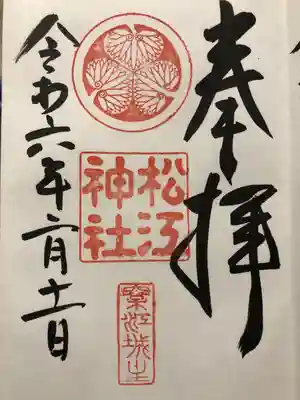 奉拝
松江
神社
江城
令和六年二月十一日